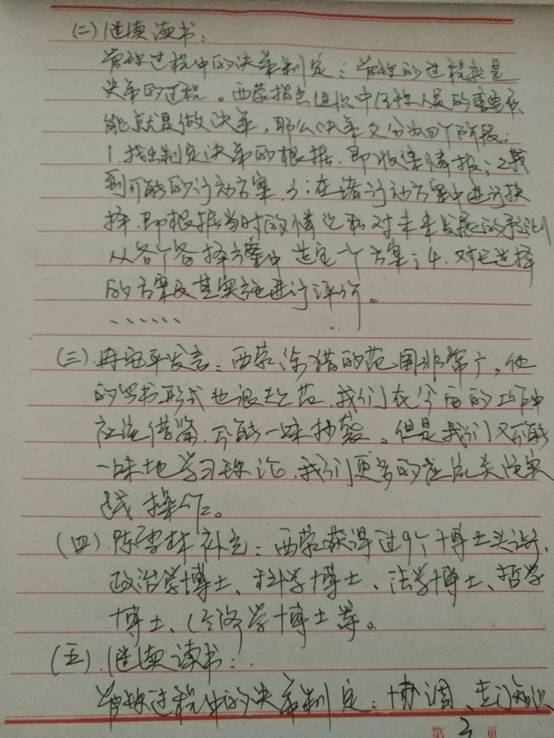 (二)继续读书:
管理过程中的决策制定:管理的过程就是
决策的过程。西蒙指出组织中经理人员的重要职
能就是做决策,那么决策又分为四个阶段:
1.找出制定决策的根据,即收集情报;2.找
到可能的行动方案;3.在诸行动方案中进行抉
择,即根据当时的情况和对未来发展的预测
从各个备择方案中选定一个方案;4.对已选择
的方案及其实施进行评价。
……
(三)发言:西蒙涉猎的范围非常广,他
的写书形式也很,我们在今后的工作中
应该借鉴,不能一味抄袭。但是我们又不能
一味地学习理论,我们更多的应该去
操作。
(四)陈补充:西蒙获得过9个博士头衔,
政治学博士、科学博士、法学博士、哲学
博士、经济学博士等。
(五)继续读书:
管理过程中的决策制定:协调、专门知识
第 2 页